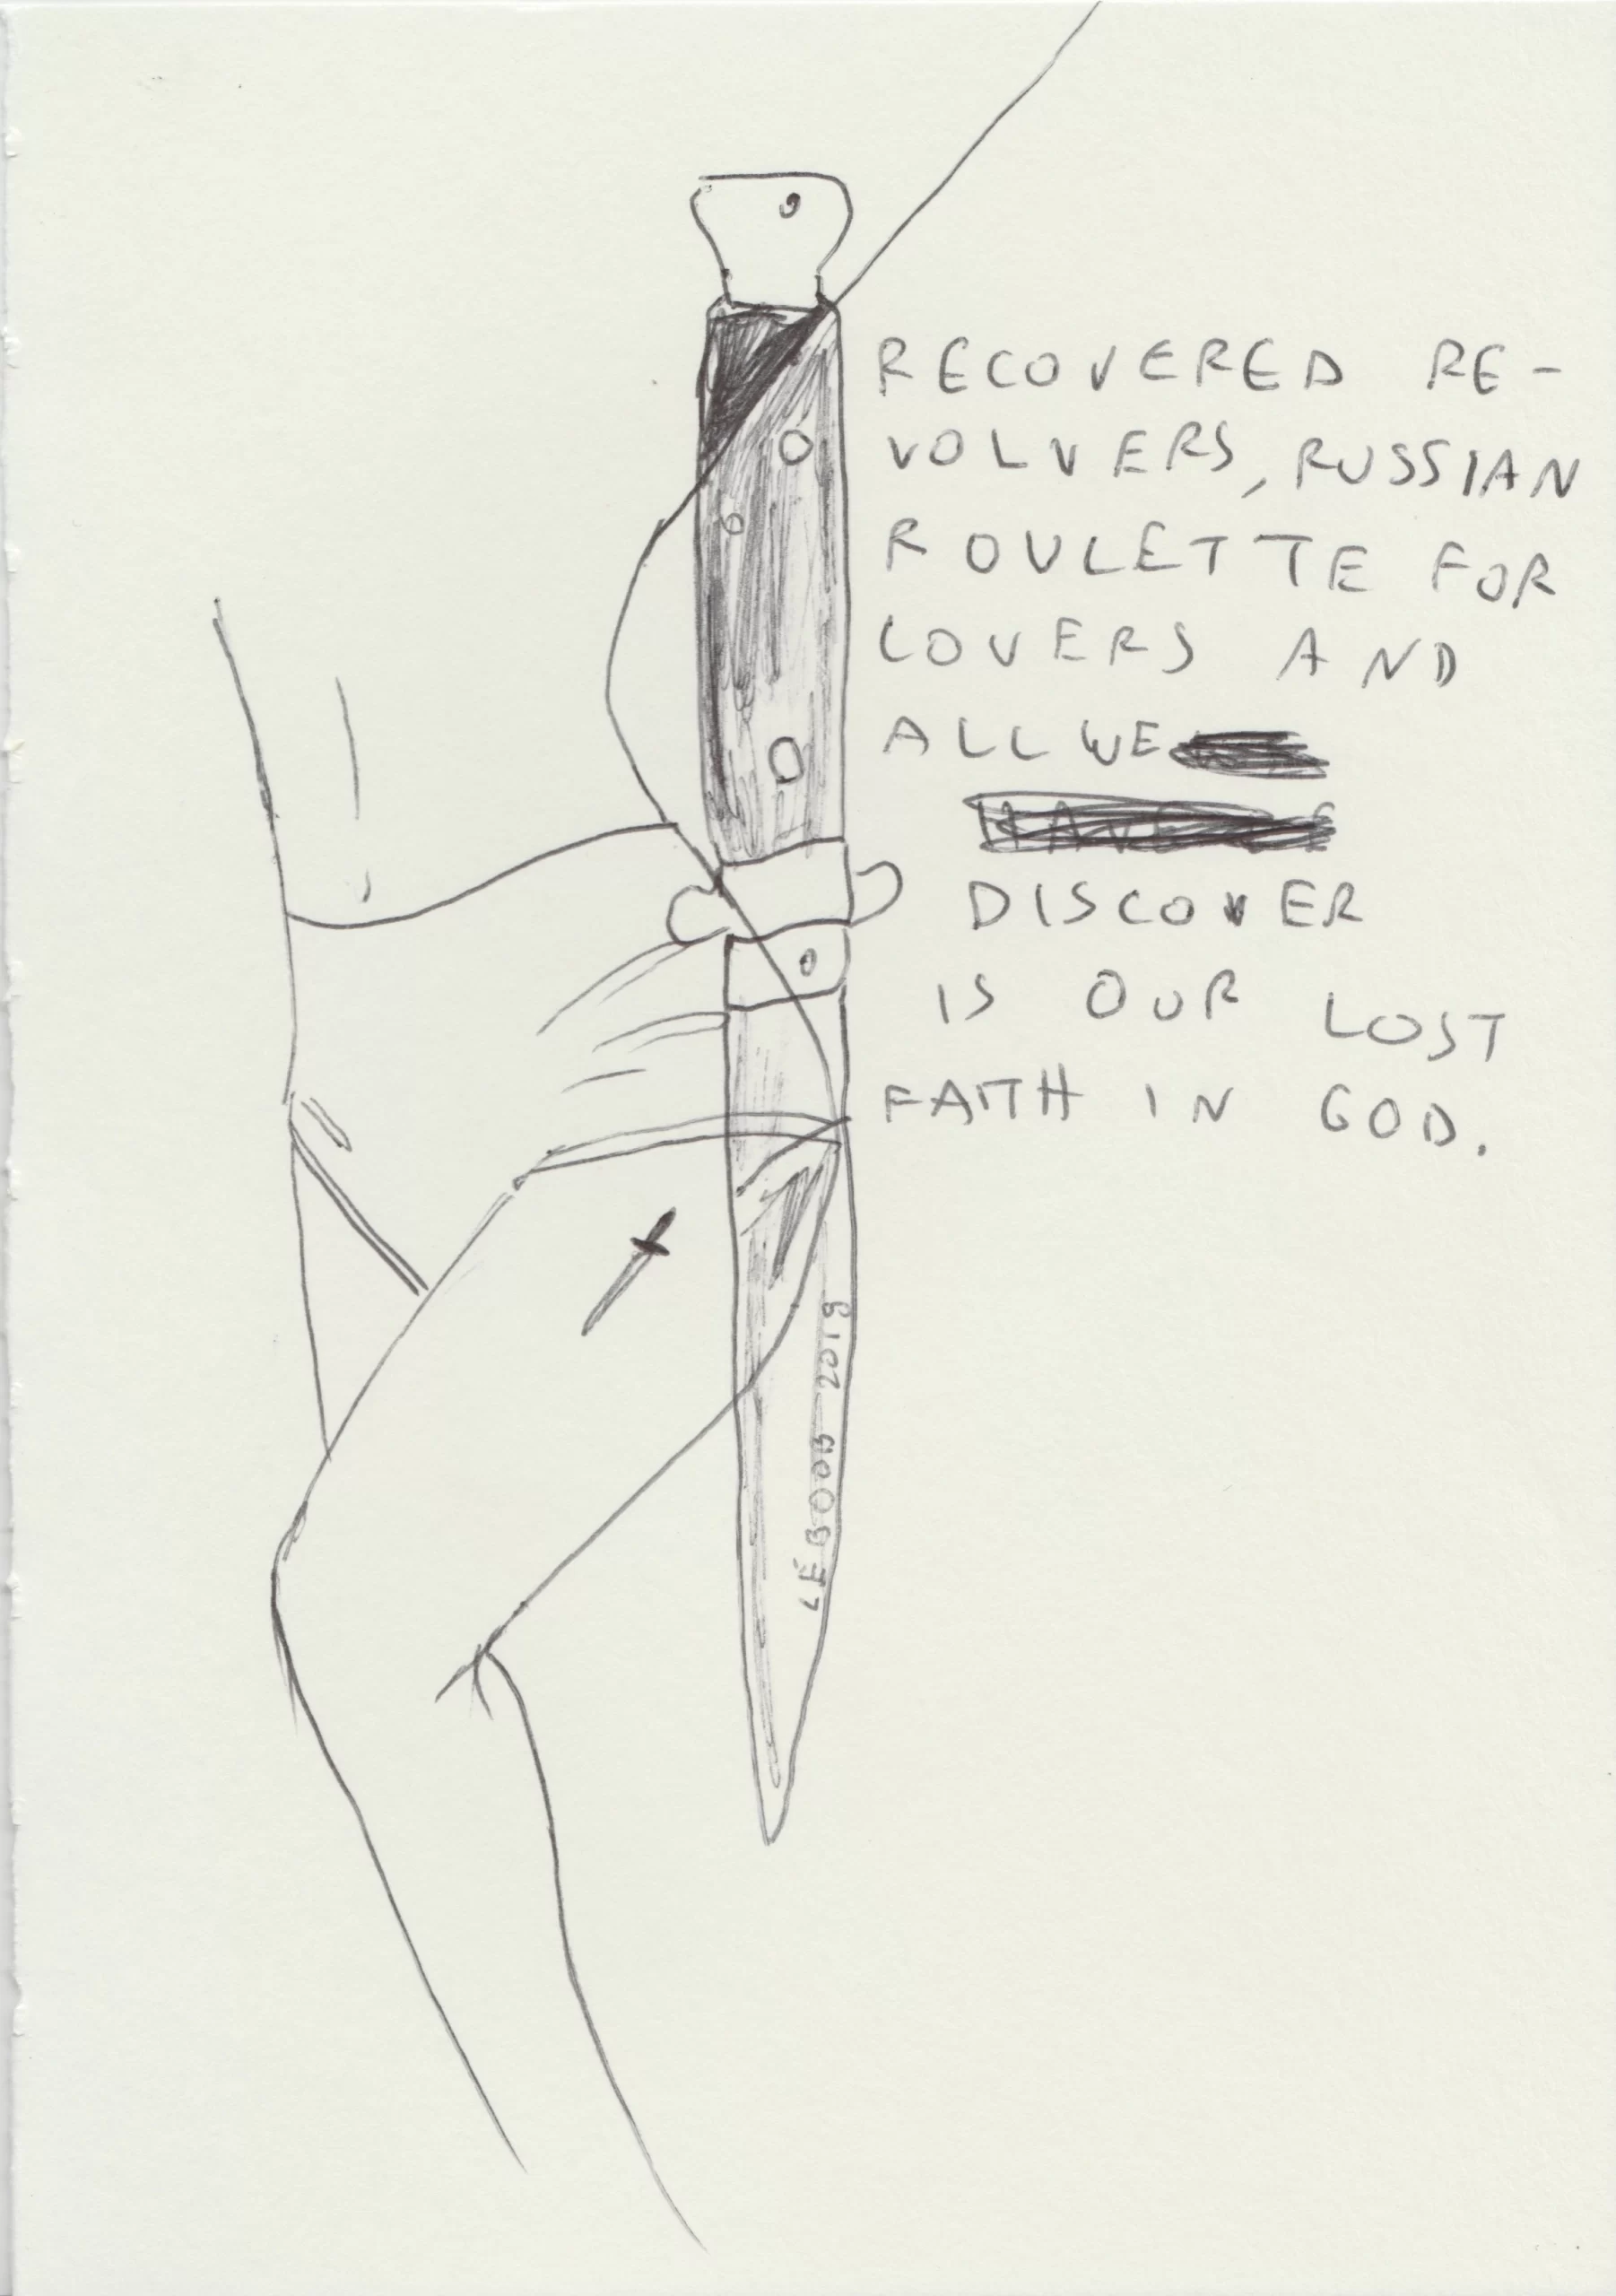 RECOVERED RE-
VOLVERS, RUSSIAN
ROULETTE FOR
LOVERS AND
ALL WE
DISCOVER
IS OUR LOST
FAITH IN GOD.
LÉBOOB 2019